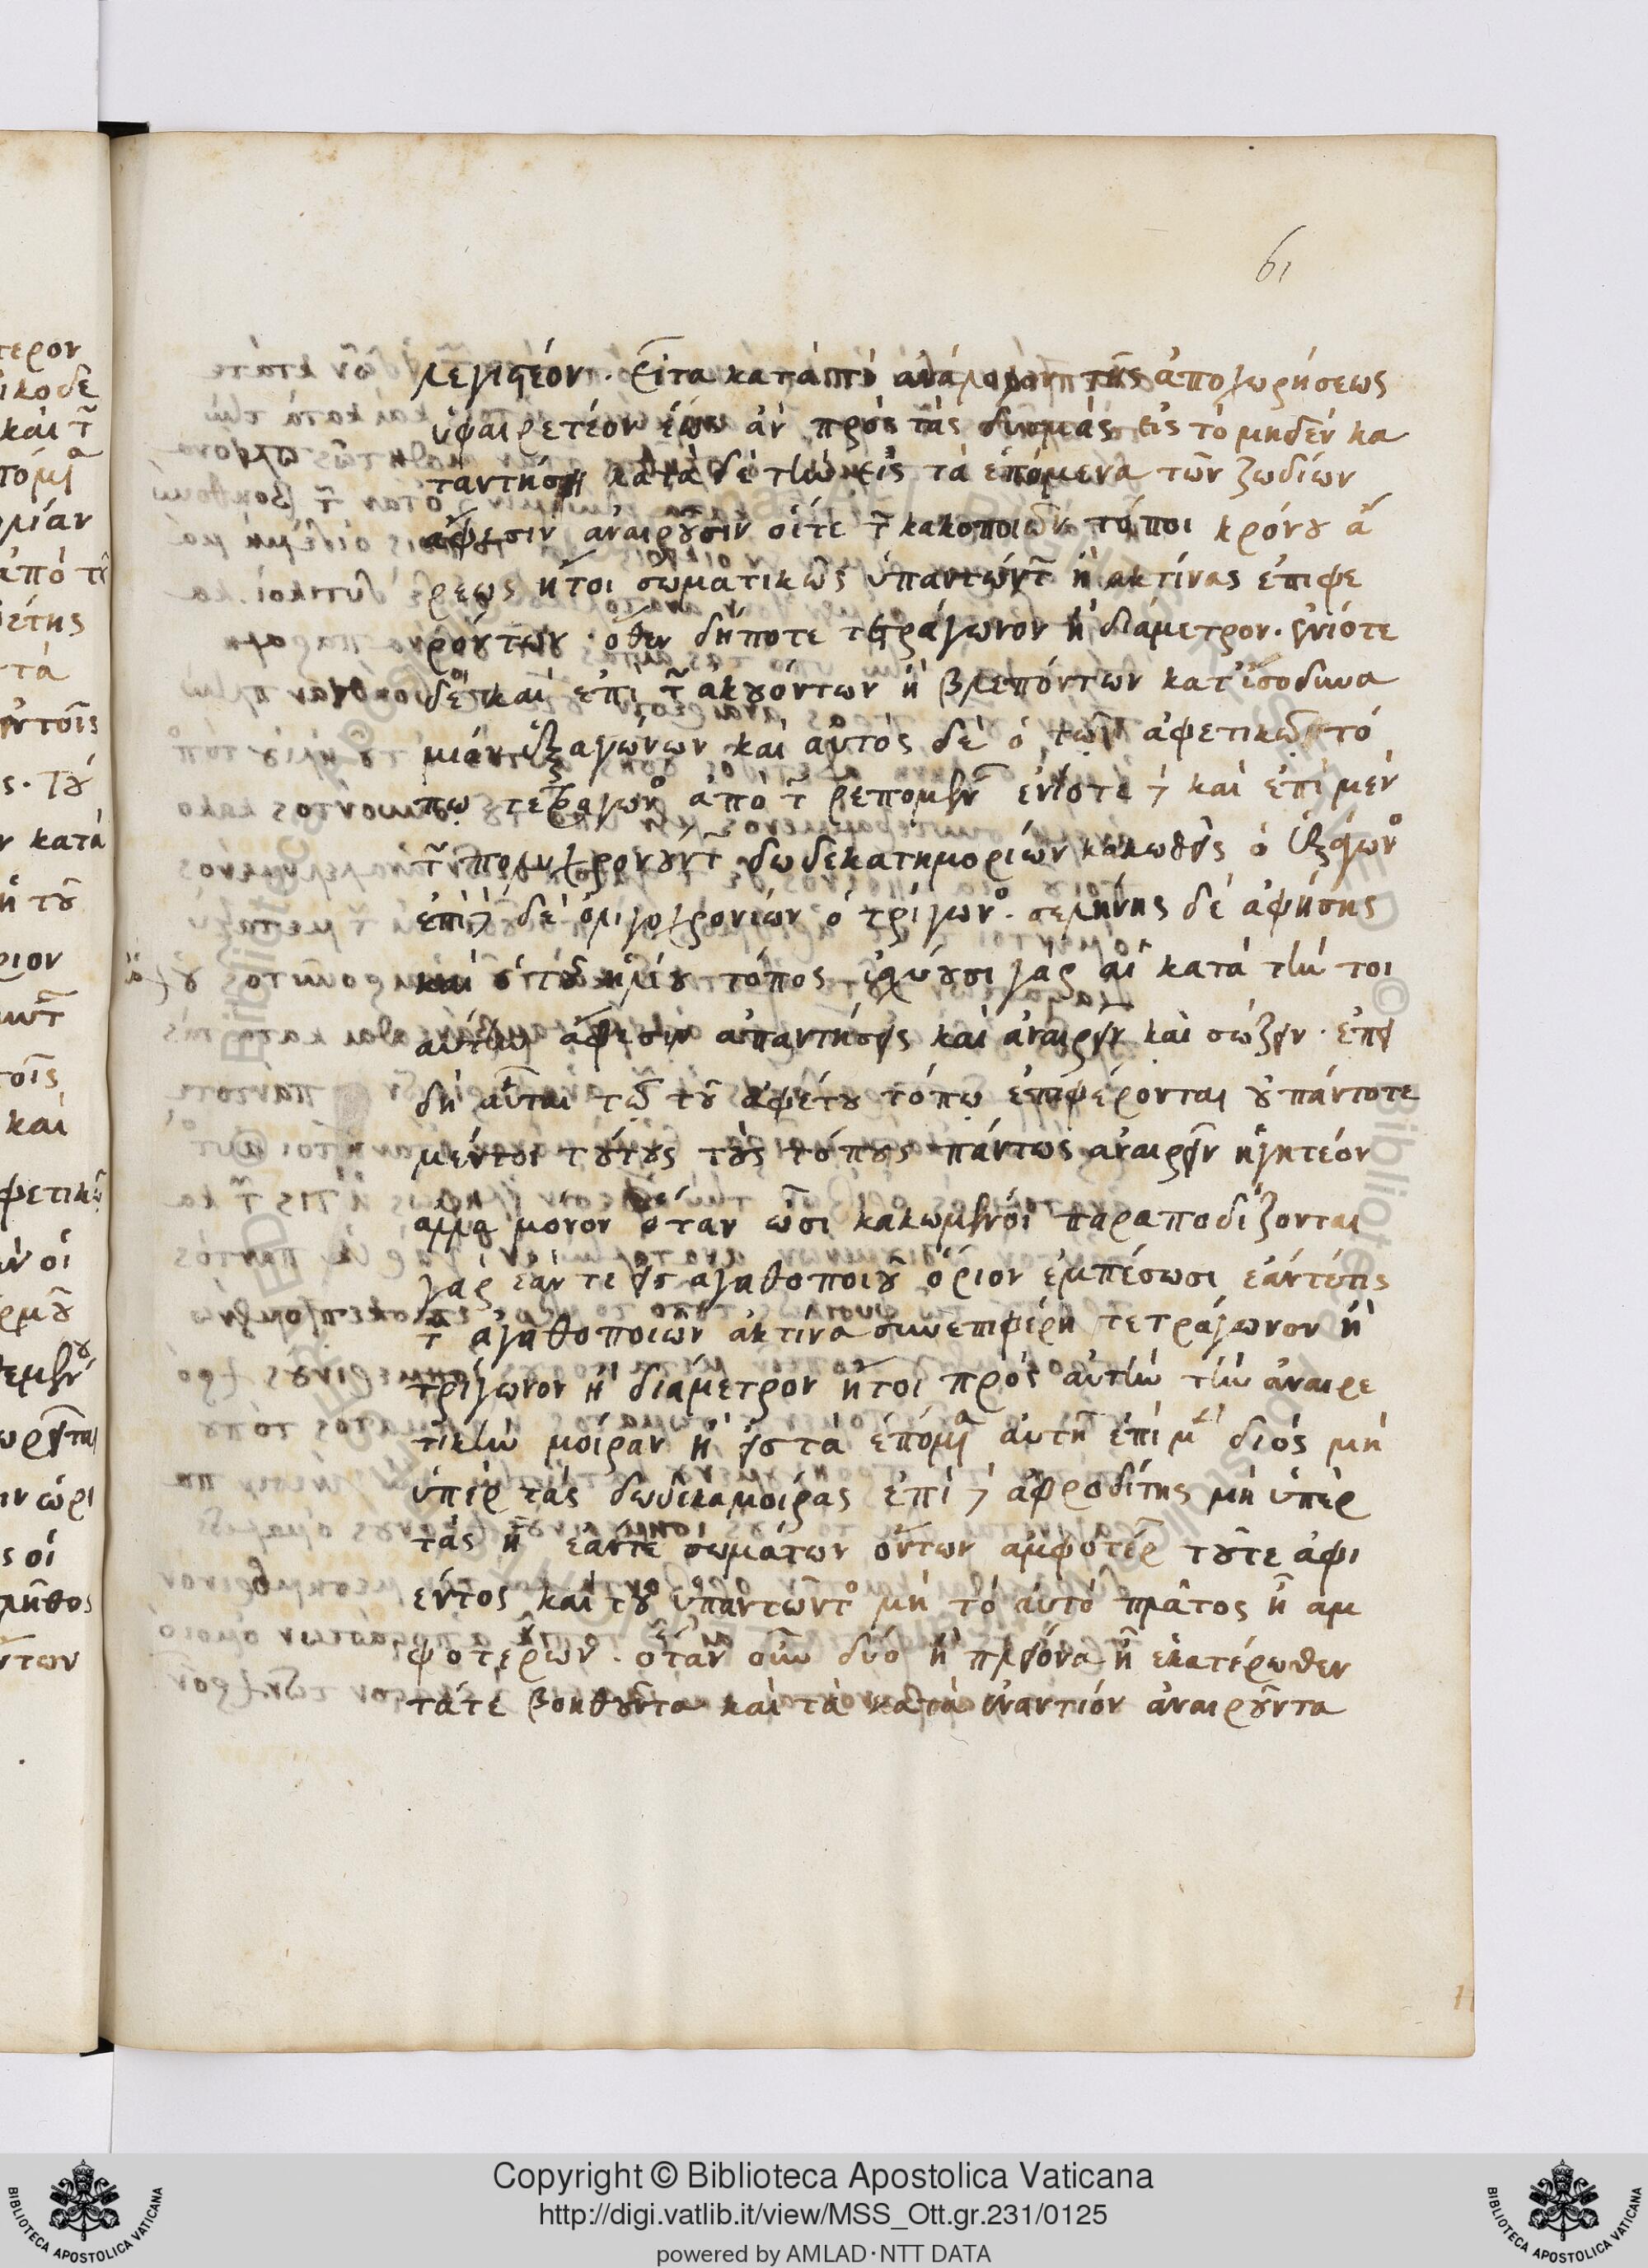 61
λεγιστέον. εἶτα κατὰ τὸ ἀνάλογον τῆς ἀποχωρήσεως
ὑφαιρετέον ἕως ἂν πρὸς τὰς δυσμὰς εἰς τὸ μηδὲν κα
ταντήσῃ κατὰ δὲ τὴν εἰς τὰ ἑπόμενα τῶν ζωδίων
ἄφεσιν ἀναιροῦσιν οἵτε τ̃ κακοποιῶν τόποι κρόνου ἄ
ρεως ἤτοι σωματικῶς ὑπαντώντ̃ ἢ ἀκτίνας ἐπιφε
ρόντων. ὅθεν δήποτε τετράγωνον ἢ διάμετρον. ἐνίοτε
δὲ καὶ ἐπὶ τ̃ ἀκουόντων ἢ βλεπόντων κατ' ἰσοδυνα
μίαν ἑξαγώνων καὶ αὐτὸς δὲ ὁ τῶ ἀφετικῶ τό
πω τετράγων° ἀπὸ τ̃ ἑπομέν ἐνίοτε καὶ ἐπὶ μὲν
τ̃ πολυχρονούντ̃ δωδεκατημορίων κακωθεὶς ὁ ἑξάγων°
ἐπὶ δὲ ὀλιγοχρονίων ὁ τρίγων°. σελήνης δὲ ἀφήσης
καὶ ὁ τοῦ ἡλίου τόπος ἰσχύουσι γὰρ αἱ κατὰ τὴν τοι
αύτην ἄφεσιν ἀπαντήσεις καὶ ἀναιρεῖν καὶ σώζειν. ἐπει
δὴ αὗται τῶ τοῦ ἀφέτου τόπω ἐπιφέρονται οὐ πάντοτε
μέντοι τούτους τοὺς τόπους πάντως ἀναιρεῖν ἡγητέον
ἀλλὰ μόνον ὅταν ὦσι κακωμένοι παραποδίζονται
γὰρ ἐάν τε εἰς ἀγαθοποιοῦ ὅριον ἐμπέσωσι ἐάν τέ τις
τ̃ ἀγαθοποιῶν ἀκτῖνα συνεπιφέρη τετράγωνον ἢ
τρίγωνον ἢ διάμετρον ἤτοι πρὸς αὐτὴν τὴν ἀναιρε
τικὴν μοῖραν ἢ εἰς τὰ ἑπόμ αὐτῆ ἐπὶ μ διὸς μὴ
ὑπὲρ τὰς δώδεκα μοίρας ἐπὶ ἀφροδίτης μὴ ὑπὲρ
τὰς η̄ ἐάν τε σωμάτων ὄντων ἀμφοτέρ τοῦτε ἀφι
έντος καὶ τοῦ ὑπαντῶντ° μὴ τὸ αὐτὸ πλάτος ἦ ἀμ
φοτέρων. ὅταν οὖν δύο ἢ πλείονα ἦ ἑκατέρωθεν
τάτε βοηθοῦντα καὶ τὰ κατὰ ἐναντίον ἀναιροῦντα
Copyright © Biblioteca Apostolica Vaticana
http://digi.vatlib.it/view/MSS_Ott.gr.231/0125
powered by AMLAD·NTT DATA